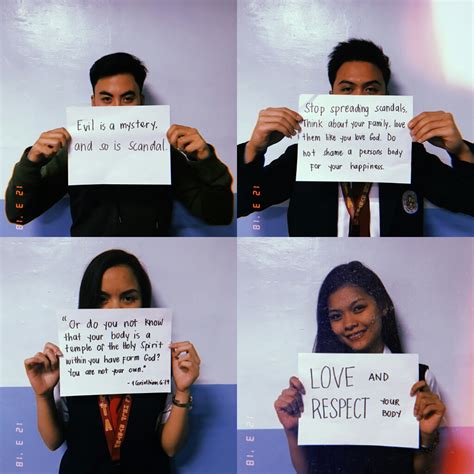 Evil is a mystery,
and so is scandal.
12 3 '18
Stop spreading scandals.
Think about your family, love
them like you love God. Do
not shame a persons body
for your happiness.
12 3 '18
"Or do you not know
that your body is a
temple of the Holy Spirit
within you have form God?
You are not your own."
- 1 Corinthians 6:19
12 3 '18
LOVE AND
RESPECT YOUR
BODY
12 3 '18